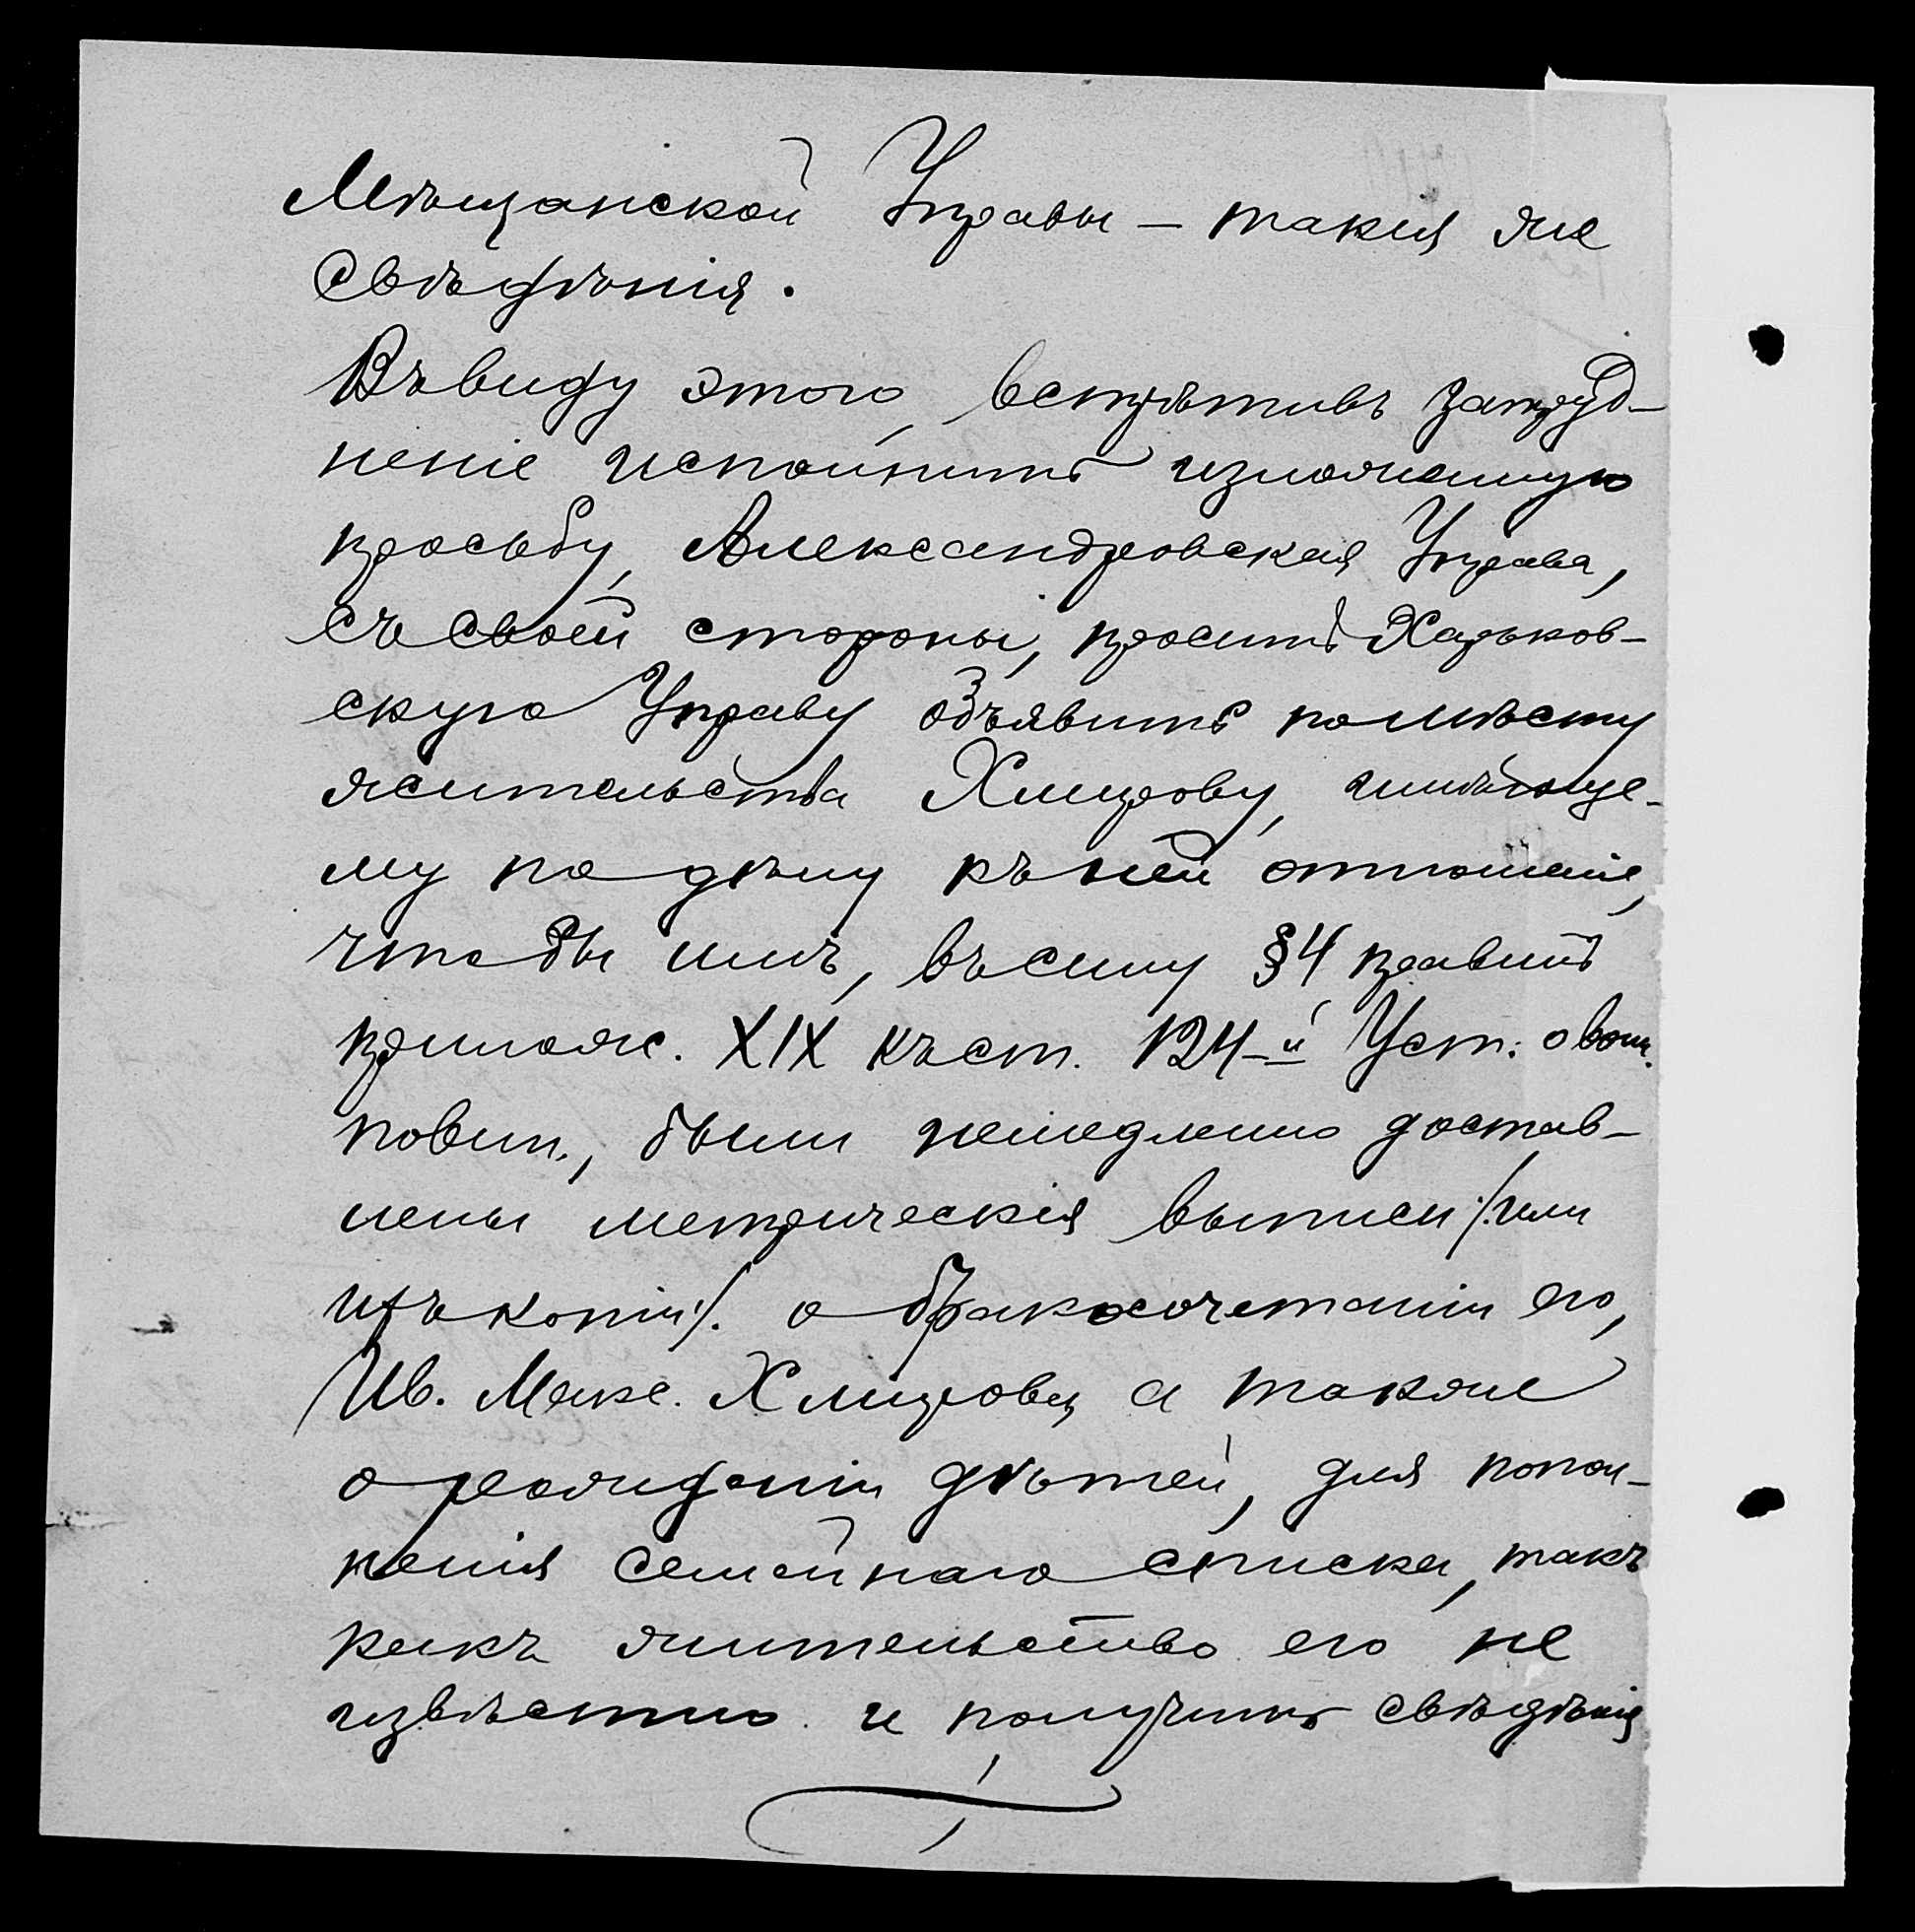 Мѣщанской Управы – такия же
свѣдѣнія.
Въ виду этого, встрѣтивъ затруд-
неніе исполнить изложенную
просьбу, Александровская Управа,
съ своей стороны, проситъ Харьков-
скую Управу объявить по мѣсту
жительства Хмырову, имѣюще-
му по дѣлу къ ней отношеніе,
чтобы имъ, въ силу §4 правилъ
прилож. XIX къ ст. 124-й Уст. о воин.
повин., были немедленно достав-
лены метрическія выписи /:или
ихъ копіи:/. о бракосочетаніи его,
Ив. Макс. Хмырова, а также
о рожденіи дѣтей, для попол-
ненія семейнаго списка, такъ
какъ жительство его не
извѣстно и получить свѣдѣнія